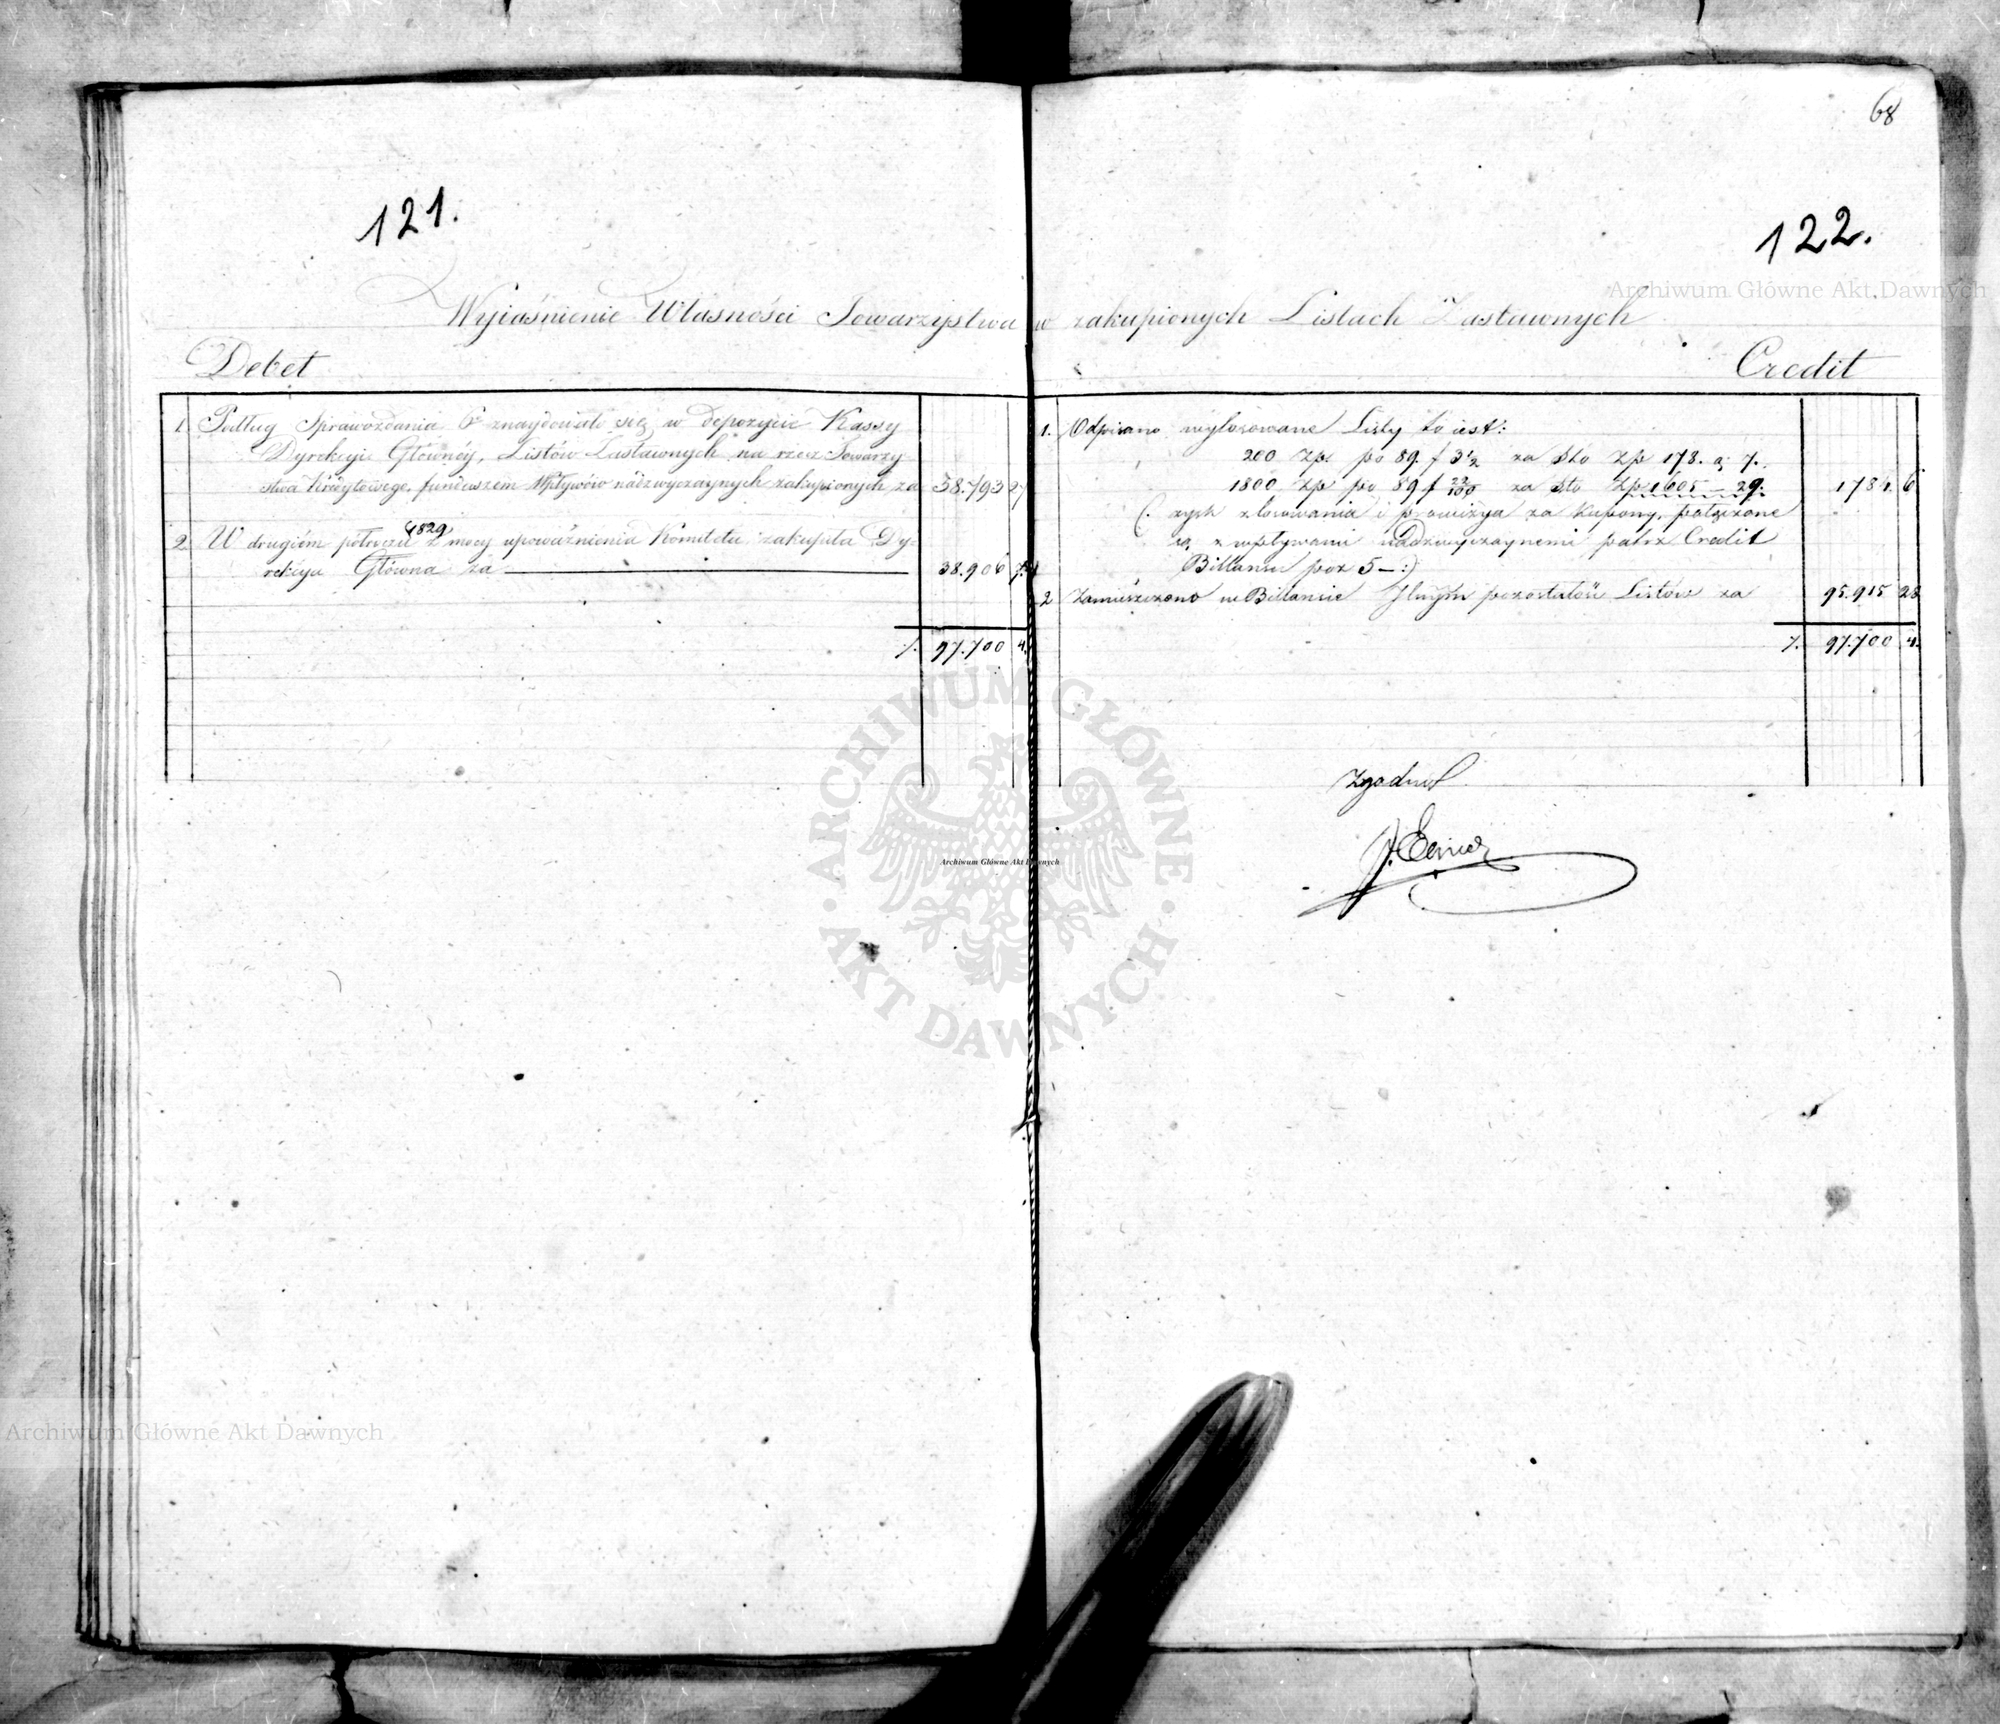 68
121.
122.
Archiwum Główne Akt Dawnych
Wyiaśnienie Własności Towarzystwa w zakupionych Listach Zastawnych
Debet
Credit
1. Podług Sprawozdania 6 znaydowało się w depozycie Kassy
Dyrekcyi Główney, Listów Zastawnych na rzecz Towarzy
stwa Kredytowego, funduszem Wpływów nadzwyczaynych zakupionych za 58.793 27
2. W drugiém półroczu 1829 z mocy upoważnienia Komitetu zakupiła Dy-
rekcya Główna za 38.906 7
/. 97.700 4.
1. Odpisano wylosowane Listy to iest:
200 Zp. po 89. f 3½ za Sto Zp 178. gr 7.
1800 Zp po 89 f 22/100 za Sto Zp 1605 – 29. 1784. 6
(: zysk z losowania i prowizya za kupony, połączone
są z wpływami nadzwyczaynemi patrz Credit
Billansu poz 5 – :)
2 Zamieszczono w Billansie pozostałość Listów za 95.915 28
/. 97.700 4.
Zgodno
ARCHIWUM GŁÓWNE · AKT DAWNYCH ·
Archiwum Główne Akt Dawnych
Archiwum Główne Akt Dawnych